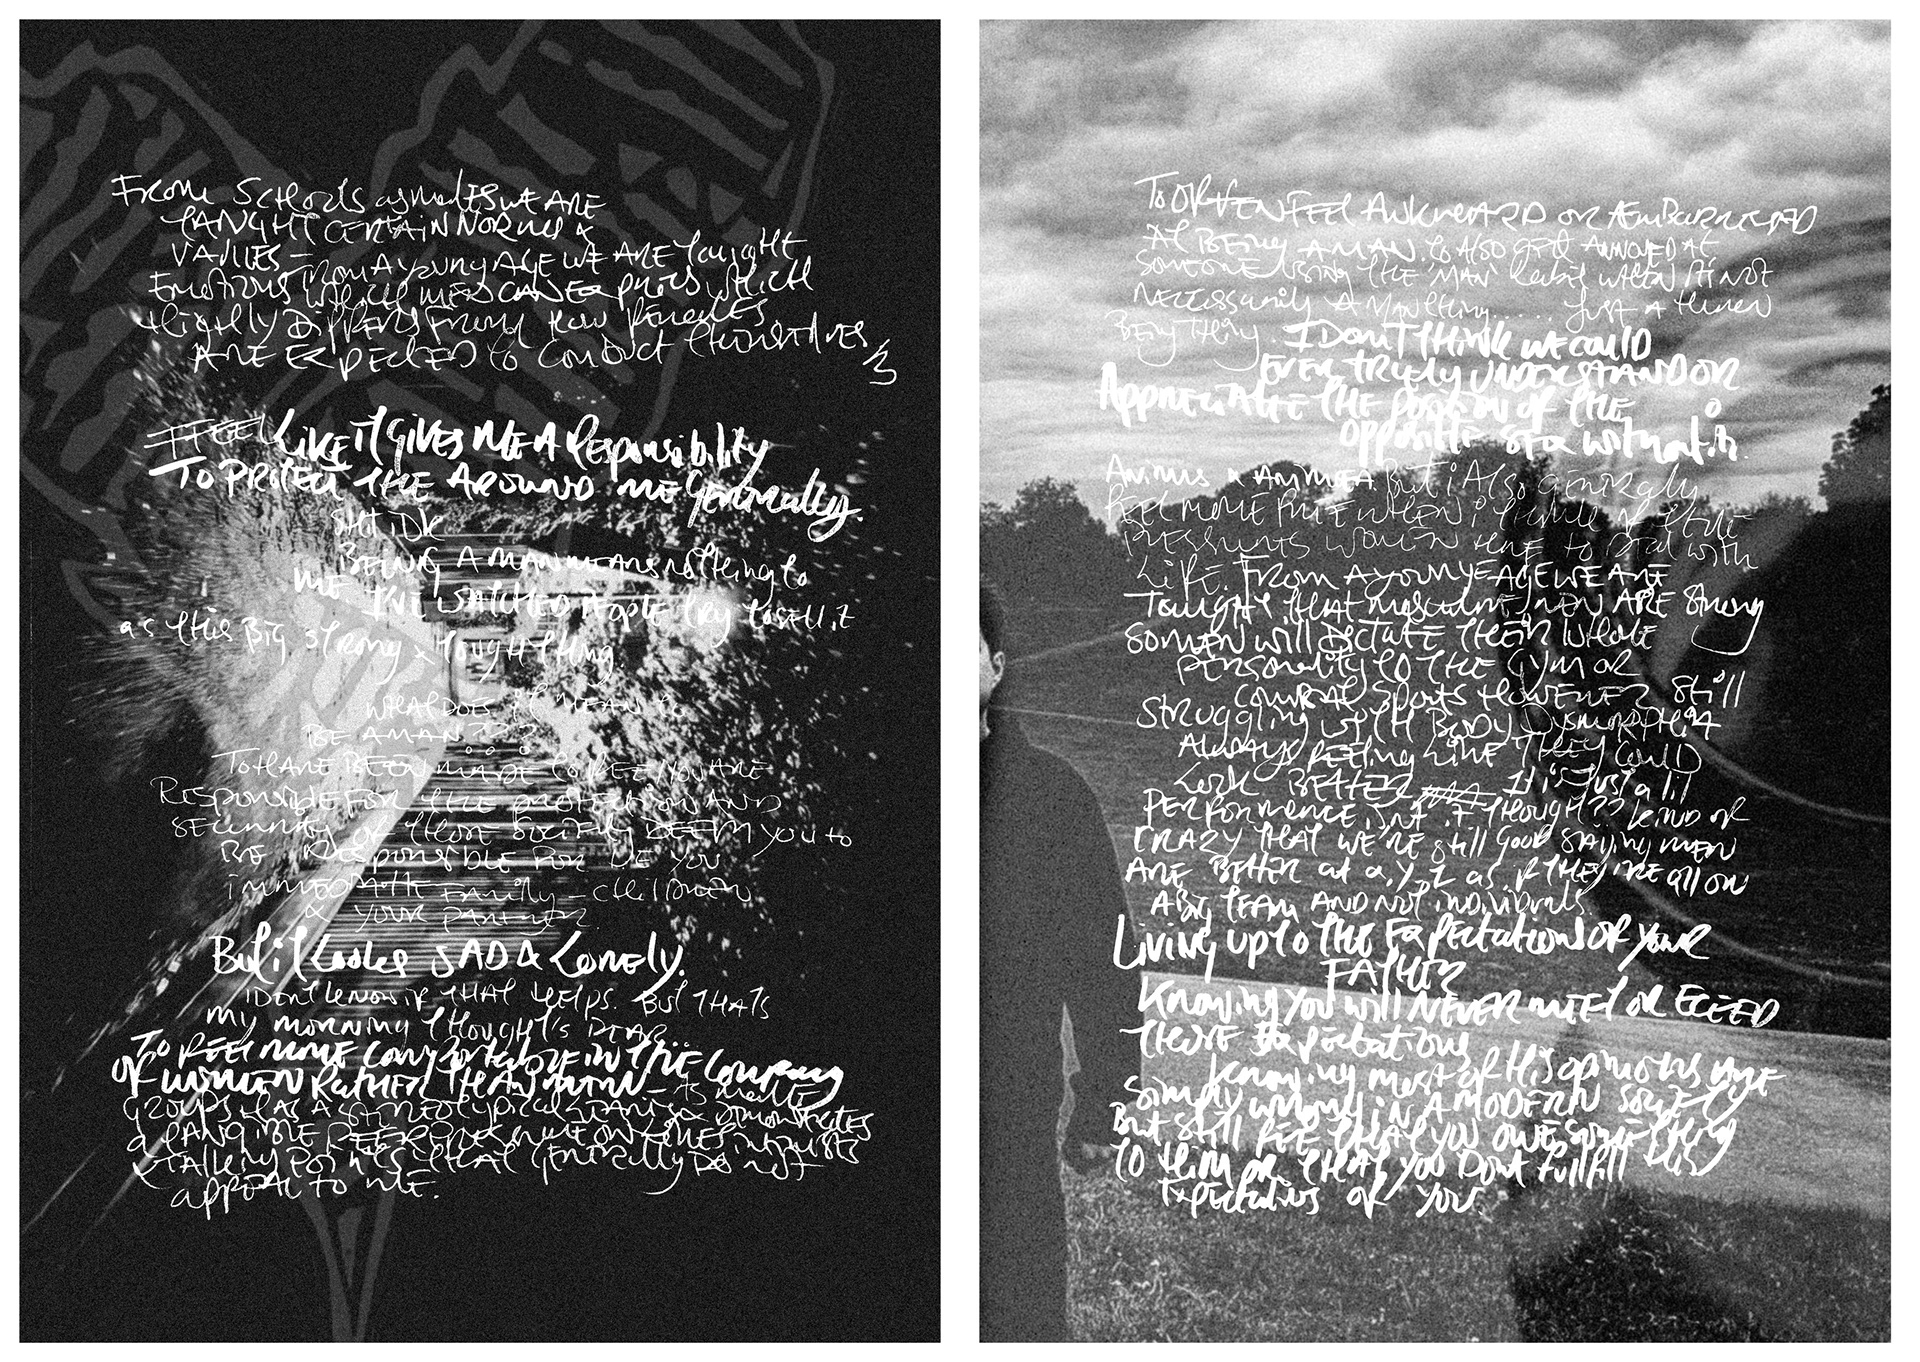 From Schools as males we ARE
TAUGHT CERTAIN NORMS &
VALUES – From A young AGE WE ARE Taught
Emotions which men CAN EXpress which
slightly DiFFers From How Females
ARE EXPECTED to Conduct themselves
I FEEL LiKE iT GiVES ME A Responsibility
To PROTECT THE AROUND ME generally.
SHIT IDK
BEING A MAN MEANS nothing to
ME I'VE WATCHED PEOPLE try to sell it
as this Big strong & Tough thing.
WHAT DOES it MEAN to
BE A MAN???
To HAVE BEEN MADE to FEEL YOU ARE
Responsible FOR THE protection AND
Security of those Society DEEM you to
BE Responsible FOR i.e You
immediate Family – children
& YOUR partner.
But it looks SAD & Lonely.
I Dont know if THAT helps. But THATS
my morning thought's DEAR
To FEEL MORE comfortable in THE Company
OF WOMEN RATHER THAN MEN – AS male
groups HAS A stereotypical &
A TANGIBLE
talking points THAT GENERALLY Do not
appeal to me.
To OFTEN FEEL AWKWARD OR
At BEING A MAN. to Also get ANNOYED AT
Someone using THE 'MAN' label when it's not
necessarily A MAN thing..... Just A human
Being thing. I DonT think we could
EVER truly UNDERSTAND OR
Appreciate THE position of THE
opposite sex without
Animus & ANIMEA But i Also generally
FEEL MORE FREE when i think of the
pressures women have to deal with
LiFE. FROM A young AGE WE ARE
Taught that masculine men ARE strong
SO MAN will DICTATE THEIR whole
Personality to THE GYM OR
COMBAT Sports However still
Struggling with Body Dysmorphia
Always feeling like They Could
Look BETTER It is Just a lil
Performance isn't it though?? kind of
CRAZY THAT WE'RE still good saying men
ARE BETTER at x, y, z as if they're all on
A Big TEAM AND not individuals.
Living up to the Expectations of your
FATHER
Knowing you will NEVER MEET OR EXCEED
those Expectations
Knowing most of His opinions are
simply wrong in A MODERN Society
But still FEEL THAT YOU OWE something
to Him or that you Dont Fulfill his
Expectations of you.